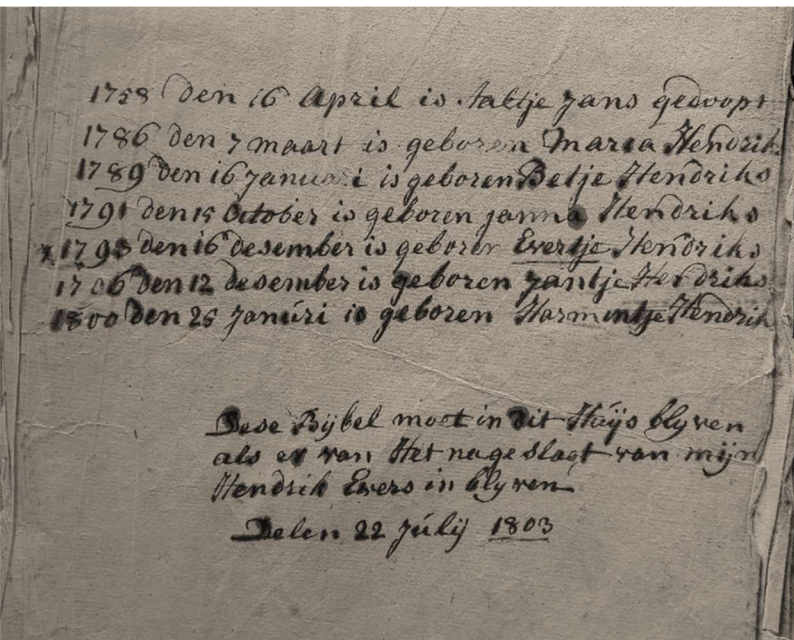 1758 den 16 April is Aaltje Jans gedoopt
1786 den 7 maart is geboren Maria Hendrik
1789 den 16 Januari is geboren Betje Hendriks
1791 den 15 October is geboren janna Hendriks
x 1793 den 16 desember is geboren Evertje Hendriks
den 12 desember is geboren jantje Hendriks
1800 den 25 Janúri is geboren Harmintje Hendrik
Dese Bijbel moet in dit Húijs blyven
als er van Het nageslagt van mijn
Hendrik Evers in blyven
Delen 22 Júlij 1803